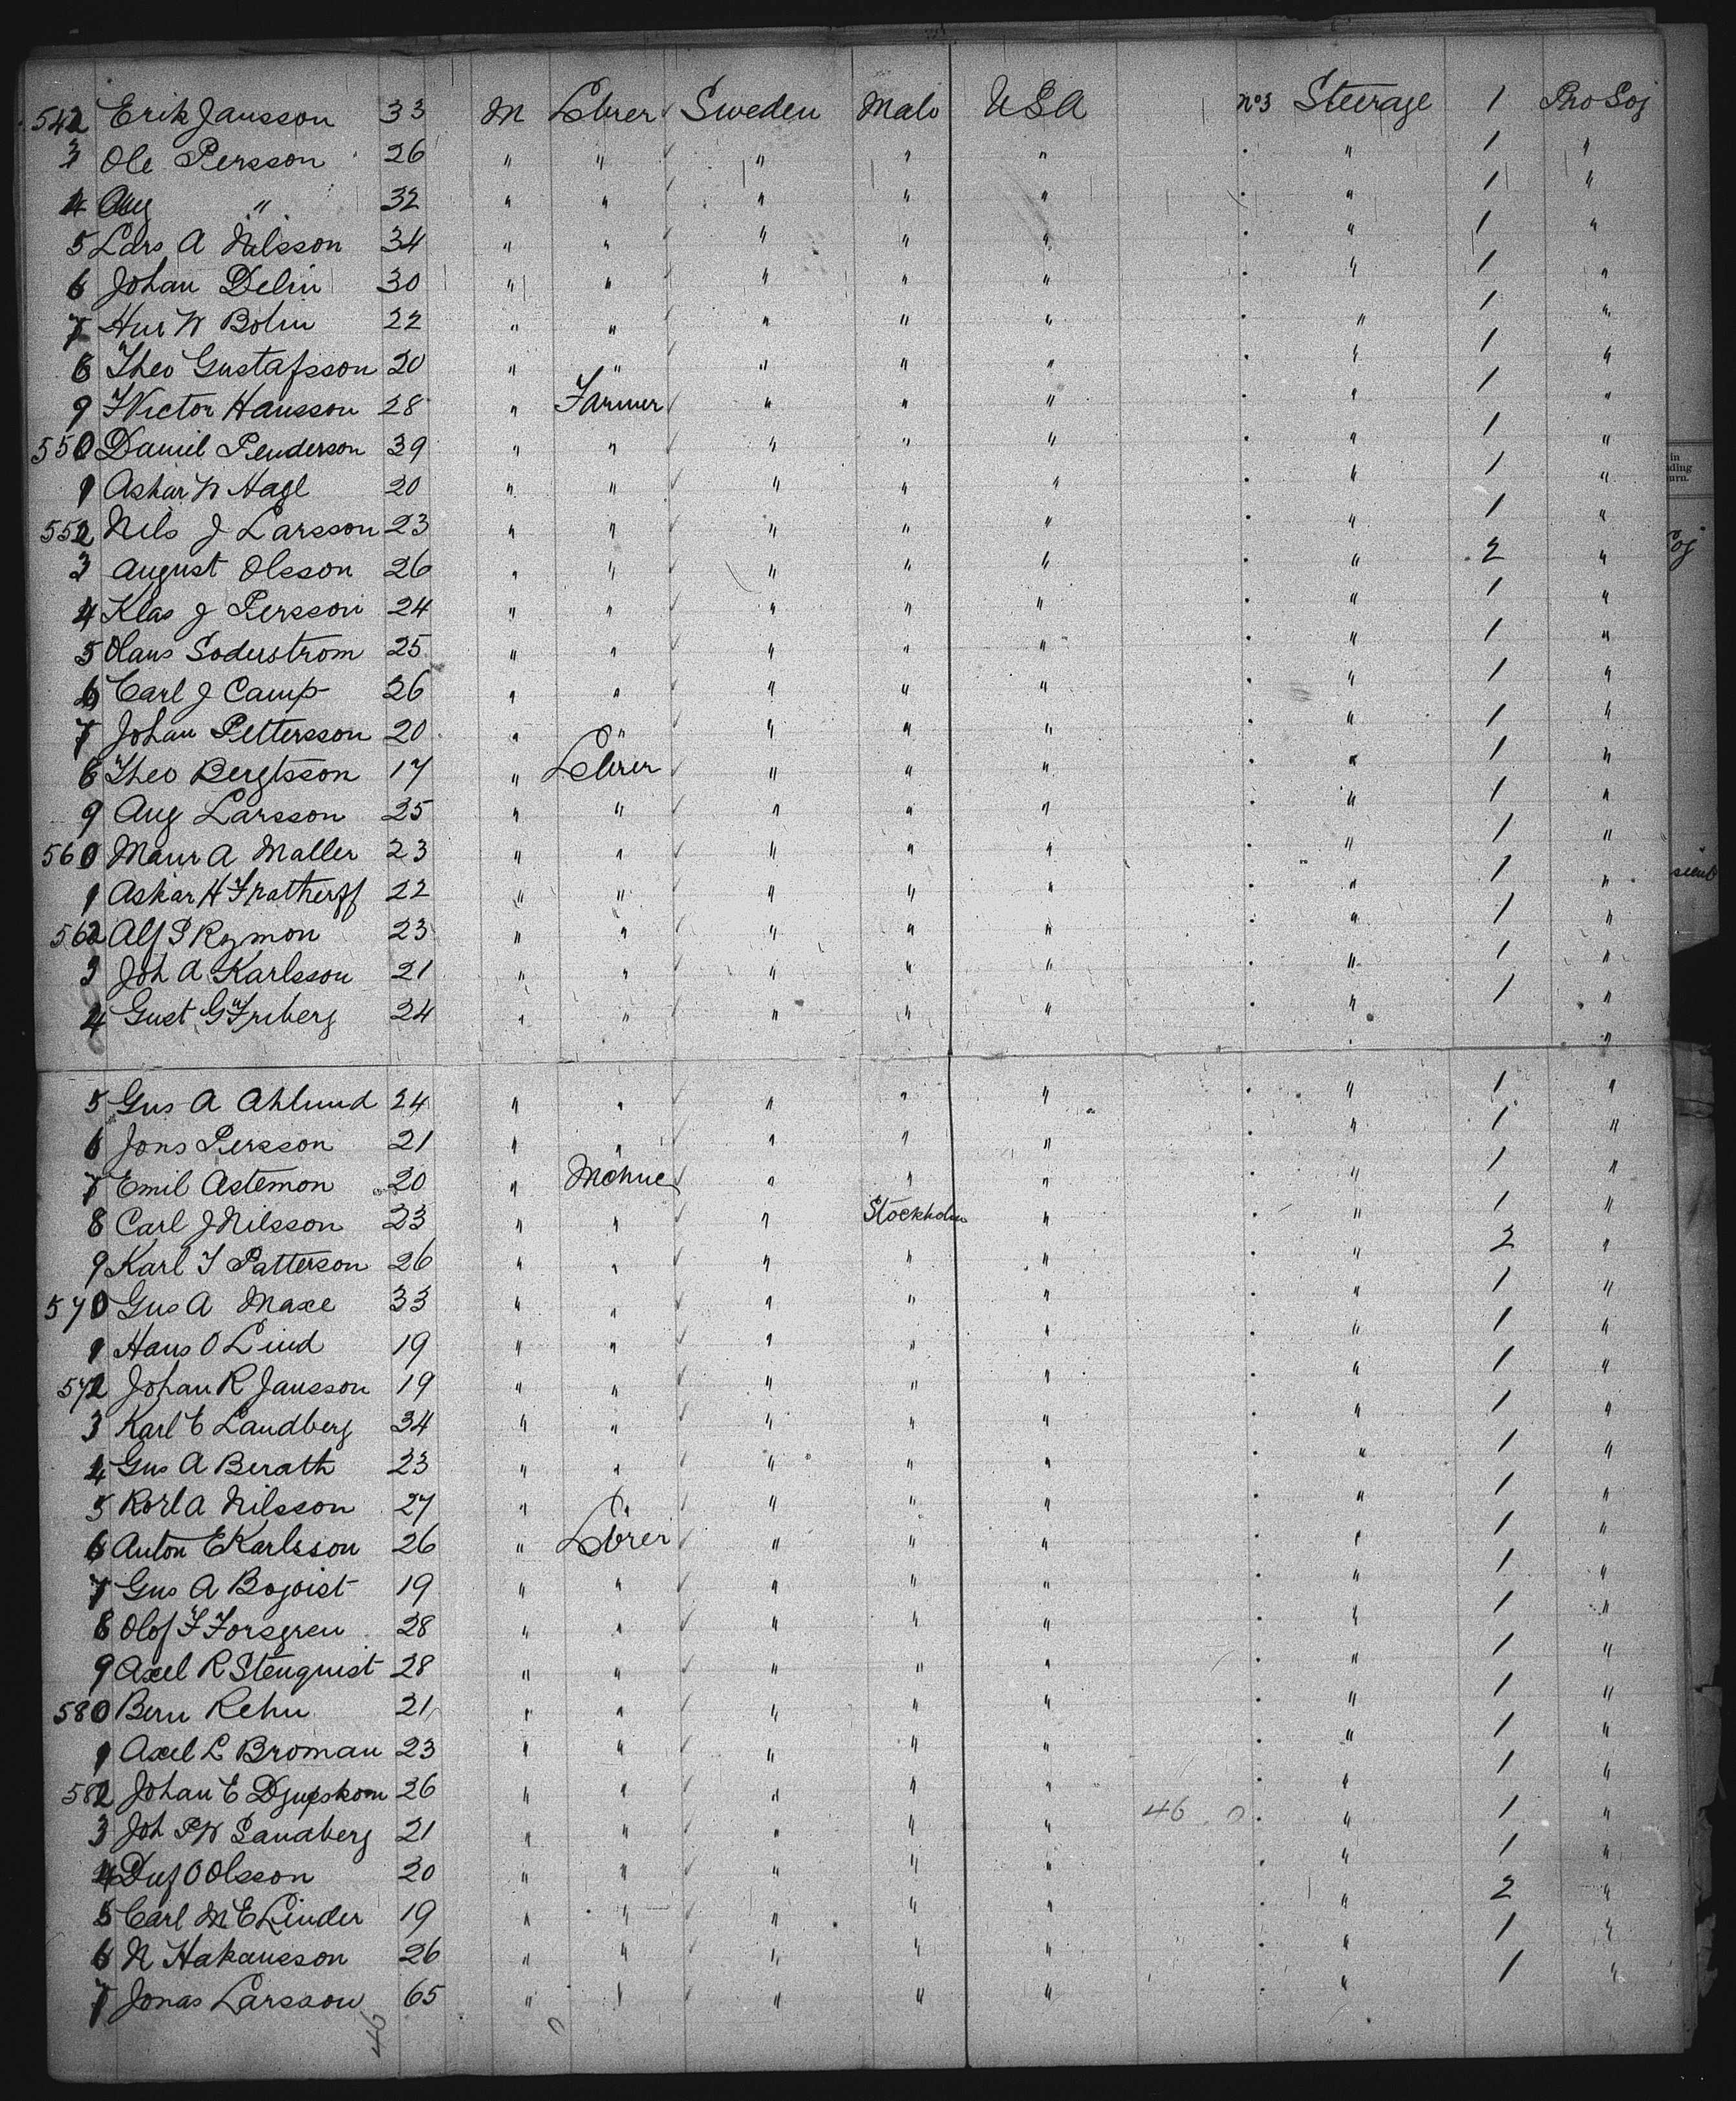 542 Erik Jansson 33 M Lbrer Sweden Malo USA No3 Steerage 1 Pro Soj
3 Ole Persson 26 " " " " " " 1 "
4 Aug " 32 " " " " " " 1 "
5 Lars A Nilsson 34 " " " " " " 1 "
6 Johan Delin 30 " " " " " " 1 "
7 Hur W Bolin 22 " " " " " " 1 "
8 Theo Gustafsson 20 " " " " " " 1 "
9 F Victor Hansson 28 " Farmer " " " " 1 "
550 Daniel Penderson 39 " " " " " " 1 "
1 Askar W Hagl 20 " " " " " " 1 "
552 Nils J Larsson 23 " " " " " " 1 "
3 August Olsson 26 " " " " " " 2 "
4 Klas J Persson 24 " " " " " " 1 "
5 Olaus Soderstrom 25 " " " " " " 1 "
6 Carl J Camp 26 " " " " " " 1 "
7 Johan Pettersson 20 " " " " " " 1 "
8 Theo Bergtsson 17 " Lbrer " " " " 1 "
9 Aug Larsson 25 " " " " " " 1 "
560 Maur A Maller 23 " " " " " " 1 "
1 Askar H 22 " " " " " " 1 "
562 Alf S Rymon 23 " " " " " " 1 "
3 Joh A Karlsson 21 " " " " " " 1 "
4 Gust G Friberg 24 " " " " " " 1 "
"
5 Gus A Ahlund 24 " " " " " " 1 "
6 Jons Persson 21 " " " " " " 1 "
7 Emil Astemon 20 " Mchnc " " " " 1 "
8 Carl J Nilsson 23 " " " Stockholm " " 1 "
9 Karl T Patterson 26 " " " " " " 2 "
570 Gus A Maxe 33 " " " " " " 1 "
1 Hans O Lind 19 " " " " " " 1 "
572 Johan R Jansson 19 " " " " " " 1 "
3 Karl E Landberg 34 " " " " " " 1 "
4 Gus A Berath 23 " " " " " " 1 "
5 Karl A Nilsson 27 " " " " " " 1 "
6 Anton E Karlsson 26 " Lbrer " " " " 1 "
7 Gus A Boqvist 19 " " " " " " 1 "
8 Olof F Forsgren 28 " " " " " " 1 "
9 Axel R Stenquist 28 " " " " " " 1 "
580 Bern Rehn 21 " " " " " " 1 "
1 Axel L Broman 23 " " " " " " 1 "
582 Johan E Djupskom 26 " " " " " " 1 "
3 Joh P W Sandberg 21 " " " " " 46 0 " 1 "
4 O Olsson 20 " " " " " " 1 "
5 Carl M E Linder 19 " " " " " " 2 "
6 N Hakansson 26 " " " " " " 1 "
7 Jonas Larsson 65 " " " " " " 1 "
46 0